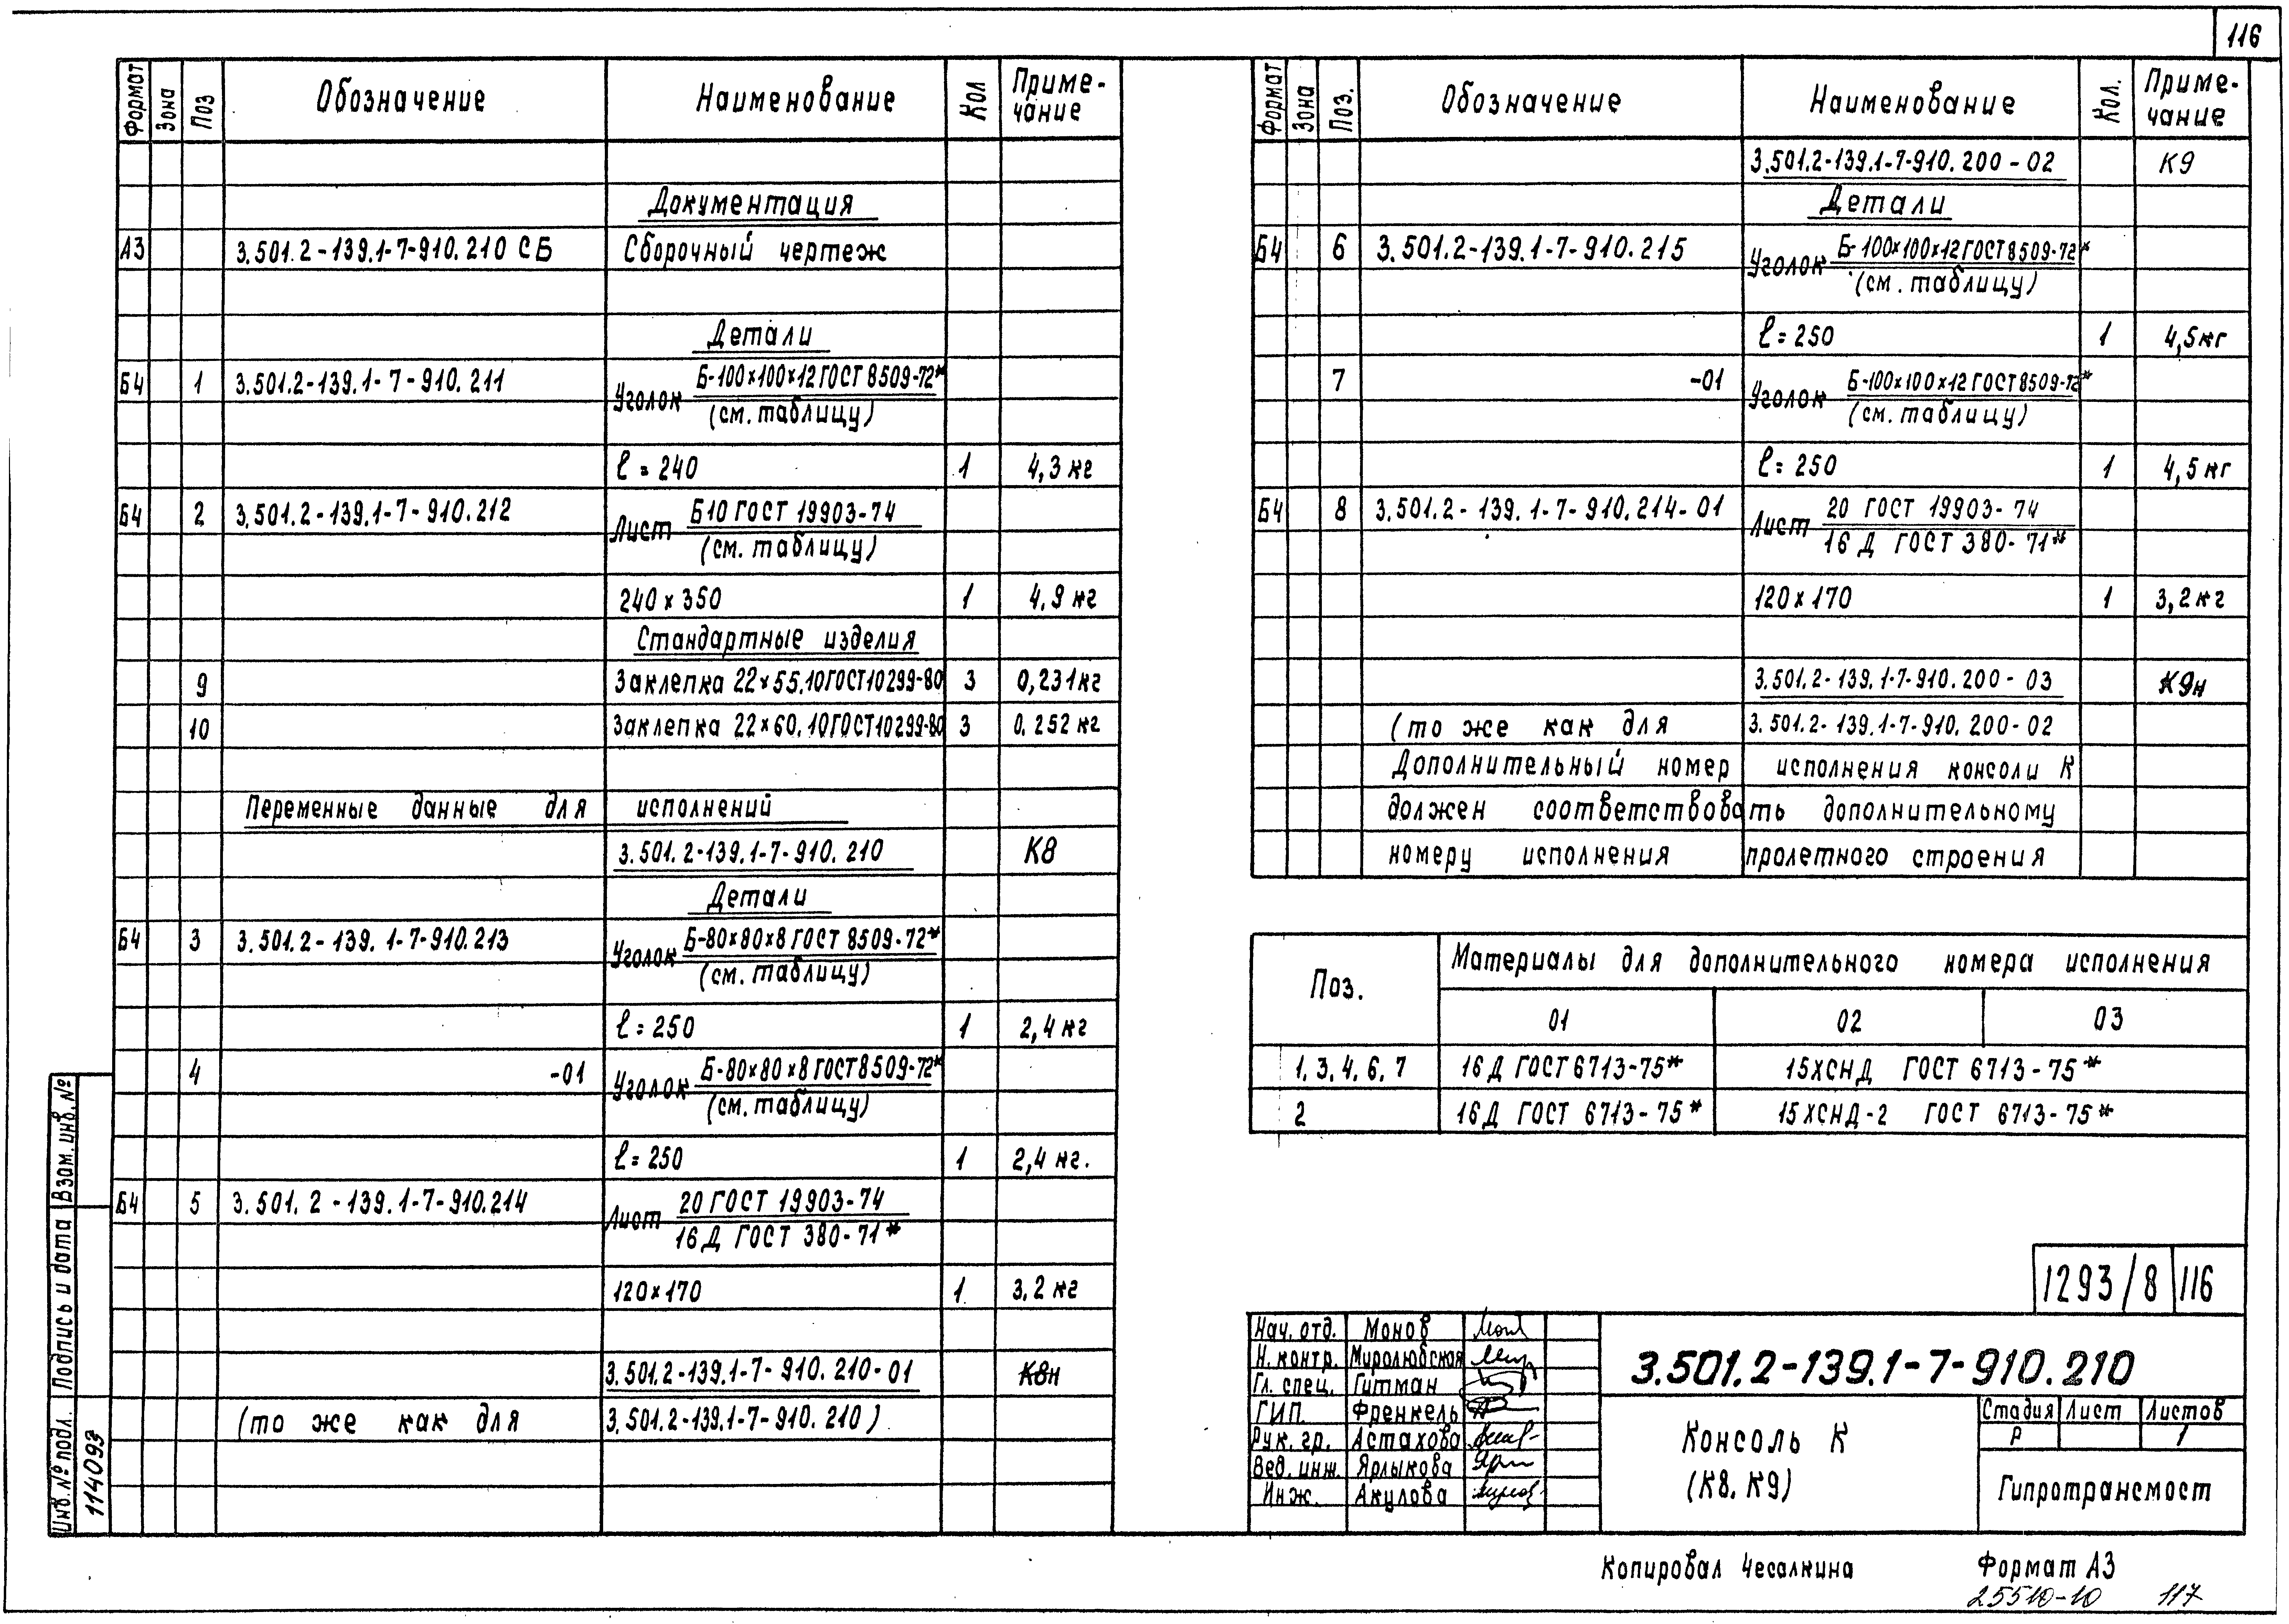 116
Формат Зона Поз Обозначение Наименование Кол Приме-чание
Документация
А3 3.501.2-139.1-7-910.210 СБ Сборочный чертеж
Детали
Б4 1 3.501.2-139.1-7-910.211 Уголок Б-100×100×12 ГОСТ 8509-72*
(см. таблицу)
ℓ=240 1 4,3 кг
Б4 2 3.501.2-139.1-7-910.212 Лист Б10 ГОСТ 19903-74
(см. таблицу)
240×350 1 4,9 кг
Стандартные изделия
9 Заклепка 22×55.10 ГОСТ 10299-80 3 0,231кг
10 Заклепка 22×60.10 ГОСТ 10299-80 3 0.252 кг
Переменные данные для исполнений
3.501.2-139.1-7-910.210 К8
Детали
Б4 3 3.501.2-139.1-7-910.213 Уголок Б-80×80×8 ГОСТ 8509-72*
(см. таблицу)
ℓ=250 1 2,4 кг
4 -01 Уголок Б-80×80×8 ГОСТ 8509-72*
(см. таблицу)
ℓ=250 1 2,4 кг.
Б4 5 3.501.2-139.1-7-910.214 Лист 20 ГОСТ 19903-74
16Д ГОСТ 380-71*
120×170 1 3.2 кг
3.501.2-139.1-7-910.210-01 К8н
(то же как для 3.501.2-139.1-7-910.210)
Формат Зона Поз. Обозначение Наименование Кол. Приме-чание
3.501.2-139.1-7-910.200-02 К9
Детали
Б4 6 3.501.2-139.1-7-910.215 Уголок Б-100×100×12 ГОСТ 8509-72*
(см. таблицу)
ℓ=250 1 4,5кг
7 -01 Уголок Б-100×100×12 ГОСТ 8509-72*
(см. таблицу)
ℓ=250 1 4,5 кг
Б4 8 3.501.2-139.1-7-910.214-01 Лист 20 ГОСТ 19903-74
16Д ГОСТ 380-71*
120×170 1 3,2кг
3.501.2-139.1-7-910.200-03 К9н
(то же как для 3.501.2-139.1-7-910.200-02
Дополнительный номер исполнения консоли К
должен соответствовать дополнительному
номеру исполнения пролетного строения
Поз. Материалы для дополнительного номера исполнения
01 02 03
1, 3, 4, 6, 7 16Д ГОСТ 6713-75* 15ХСНД ГОСТ 6713-75*
2 16Д ГОСТ 6713-75* 15ХСНД-2 ГОСТ 6713-75*
1293/8 116
Нач. отд. Монов
Н. контр. Миролюбская
Гл. спец. Гитман
ГИП. Френкель
Рук. гр. Астахова
Вед. инж. Ярлыкова
Инж. Акулова
3.501.2-139.1-7-910.210
Консоль К
(К8, К9)
Стадия Лист Листов
Р 1
Гипротрансмост
Инв. № подл. Подпись и дата Взам. инв. №
114093
Копировал Чесалкина Формат А3
25510-10 117